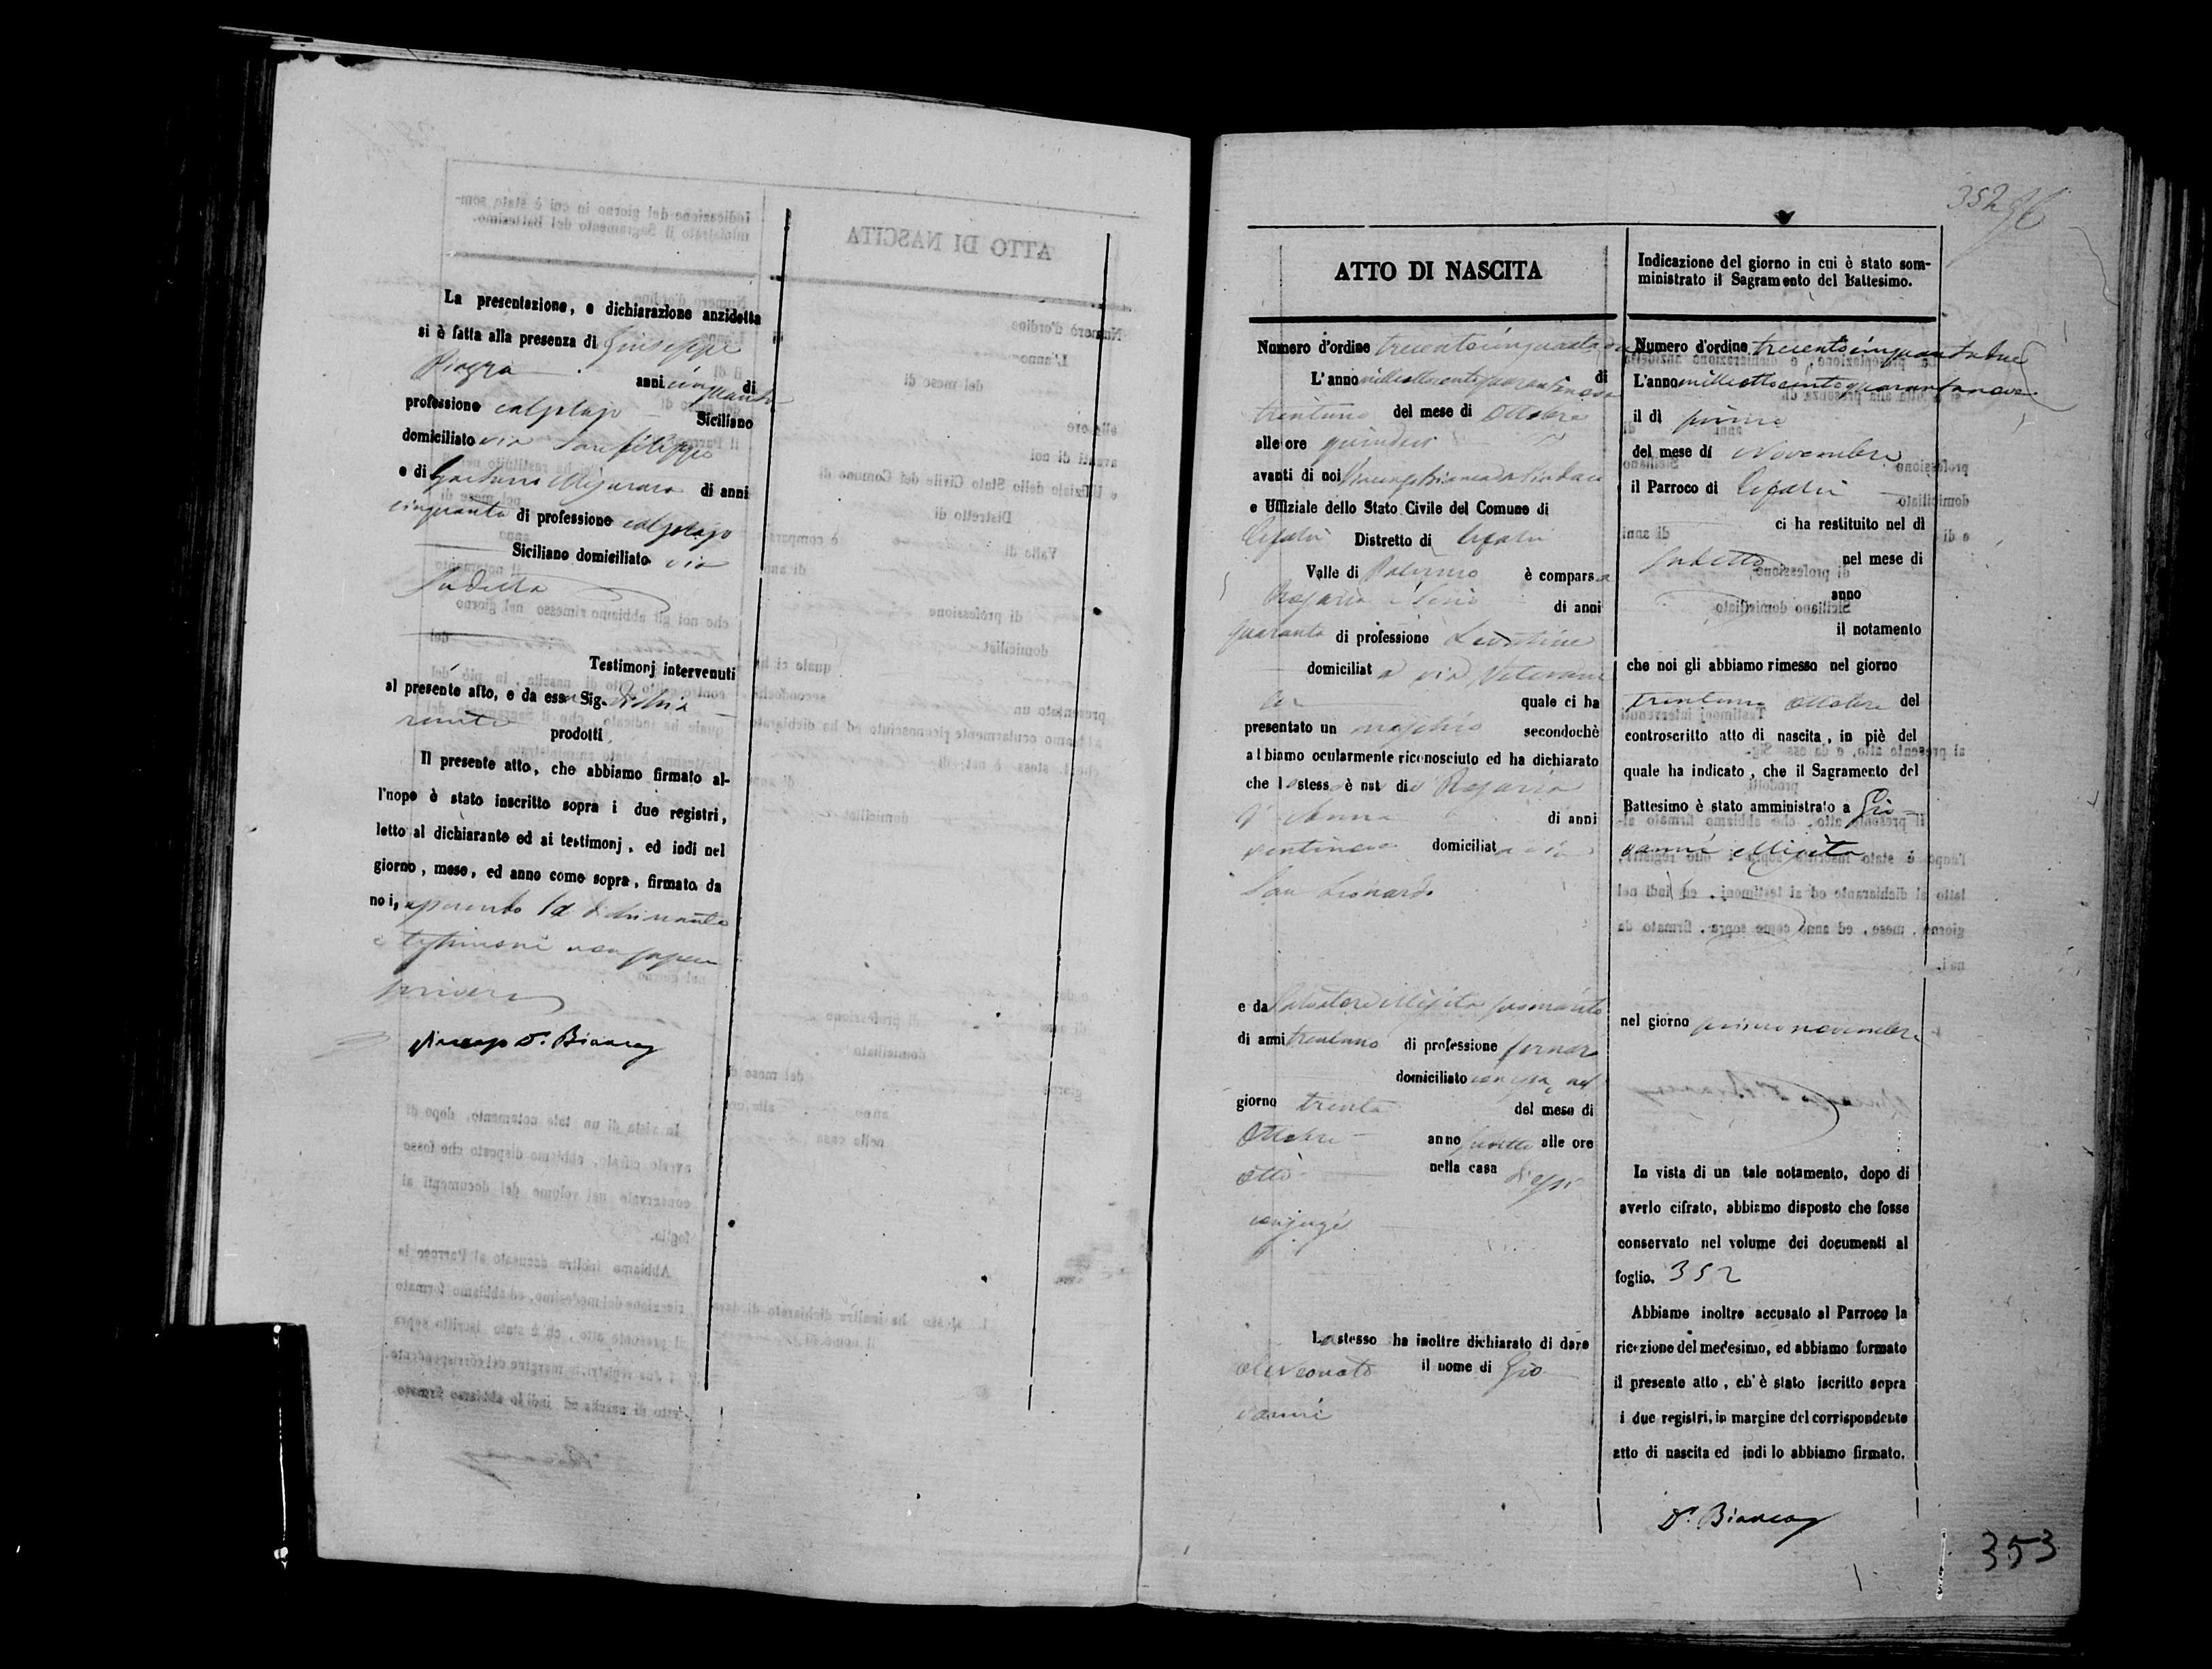 La presentazione, e dichiarazione anzidetta
si è fatta alla presenza di Giuseppe
Piazza anni cinquanta di
professione calzolajo Siciliano
domiciliato via San Filippo
e di Gaetano Misuraca di anni
cinquanta di professione calzolajo
Siciliano domiciliato via
sudetta
Testimonj intervenuti
al presente atto, e da essa Sig. dichia
rante prodotti
Il presente atto, che abbiamo firmato al-
l'nopo è stato inscritto sopra i due registri,
letto al dichiarante ed ai testimonj, ed indi nel
giorno, mese, ed anno come sopra, firmato da
noi, avendo la dichiarante
e testimoni non sapere
scrivere
Vincenzo D. Bianca
352
ATTO DI NASCITA
Numero d'ordine trecentocinquantadue
L'anno milleottocentoquarantanove di
trentuno del mese di Ottobre
alle ore quindici
avanti di noi Vincenzo Bianca Sindaco
e Uffiziale dello Stato Civile del Comune di
Cefalù Distretto di Cefalù
Valle di Palermo è comparsa
Rosaria di anni
quaranta di professione Levatrice
domiciliata via Veterani
la quale ci ha
presentato un maschio secondochè
abbiamo ocularmente riconosciuto ed ha dichiarato
che lo stesso è nato di Rosaria
D'Anna di anni
ventinove domiciliata via
San Leonardo
e da Salvatore Misita
di anni trentuno di professione fornaro
domiciliato con essa, nel
giorno trenta del mese di
Ottobre anno sudetto alle ore
otto nella casa di essi
conjugi
La stesso ha inoltre dichiarato di dare
al neonato il nome di Gio
vanni
Indicazione del giorno in cui è stato som-
ministrato il Sagramento del Battesimo.
Numero d'ordine trecentocinquantadue
L'anno milleottocentoquarantanove
il dì primo
del mese di Novembre
il Parroco di Cefalù
ci ha restituito nel dì
sudetto nel mese di
anno
il notamento
che noi gli abbiamo rimesso nel giorno
trentuno Ottobre del
controscritto atto di nascita, in piè del
quale ha indicato, che il Sagramento del
Battesimo è stato amministrato a Gio
vanni Misita
nel giorno primo novembre
In vista di un tale notamento, dopo di
averlo cifrato, abbiamo disposto che fosse
conservato nel volume dei documenti al
foglio. 352
Abbiamo inoltre accusato al Parroco la
ricezione del medesimo, ed abbiamo formato
il presente atto, ch'è stato iscritto sopra
i due registri, in margine del corrispondente
atto di nascita ed indi lo abbiamo firmato.
D. Bianca
353